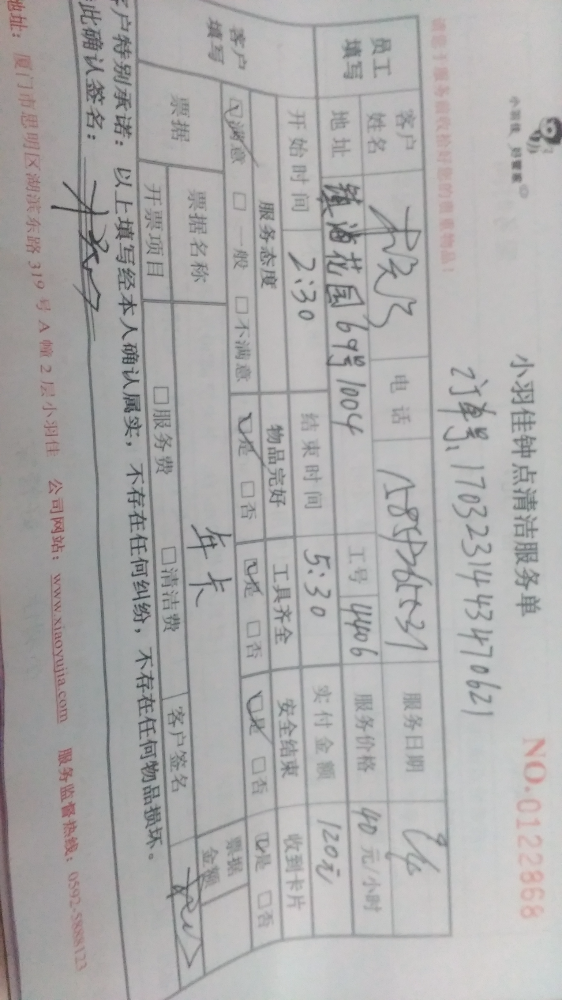 小羽佳 好管家
小羽佳钟点清洁服务单
NO.0122868
订单号:1703231443470621
请您于服务前收拾好您的贵重物品!
员工填写 客户姓名 电话 服务日期
地址 镇海花园69号1004 工号 4406 服务价格 40元/小时
开始时间 2:30 结束时间 5:30 实付金额 120元 收到卡片
客户填写 服务态度 物品完好 工具齐全 安全结束 ☑是 □否
☑满意 □一般 □不满意 ☑是 □否 ☑是 □否 ☑是 □否
票据 票据名称 年卡 票据金额
开票项目 □服务费 □清洁费 客户签名
客户特别承诺:以上填写经本人确认属实,不存在任何纠纷,不存在任何物品损坏。
此确认签名:
地址:厦门市思明区湖滨东路319号A幢2层小羽佳 公司网站:www.xiaoyujia.com 服务监督热线:0592-5888123